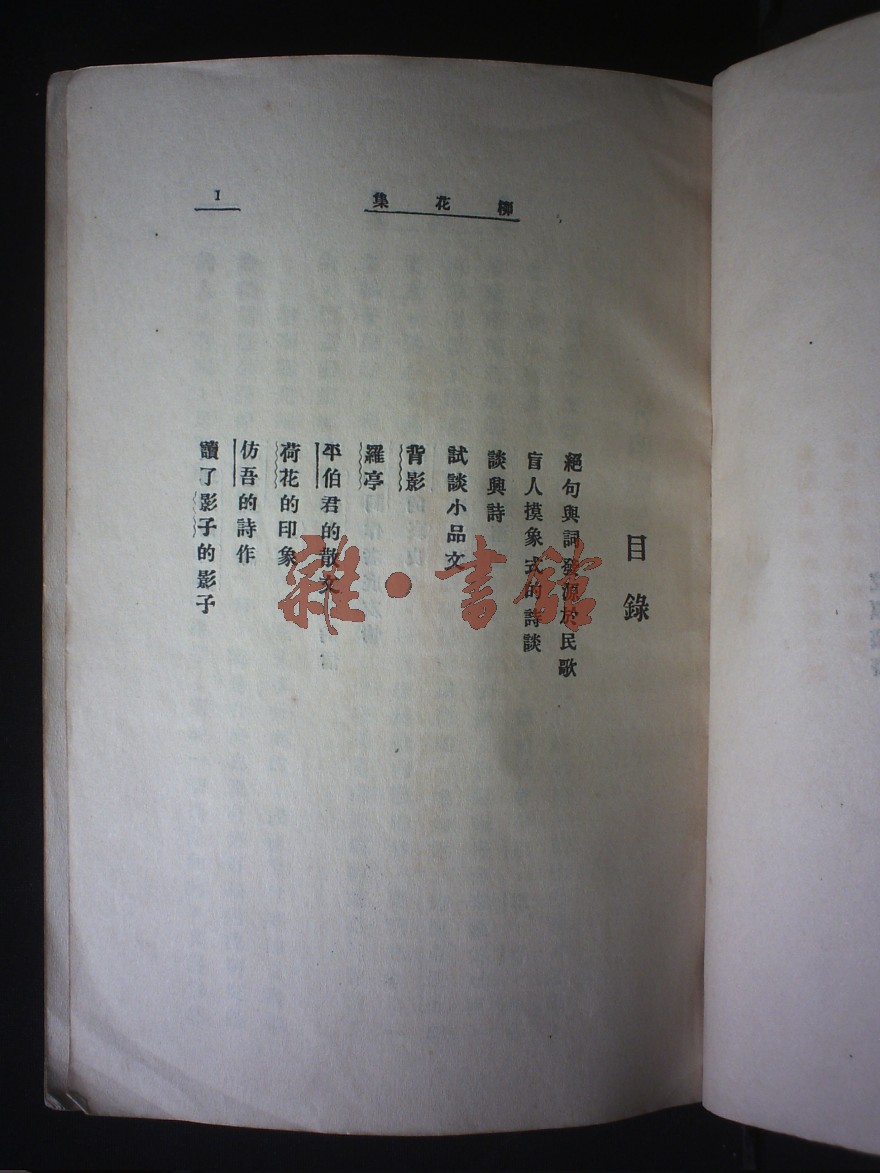 柳花集
1
目錄
絕句與詞發源於民歌
盲人摸象式的詩談
談興詩
試談小品文
背影
羅亭
平伯君的散文
荷花的印象
仿吾的詩作
讀了影子的影子
雜·書館